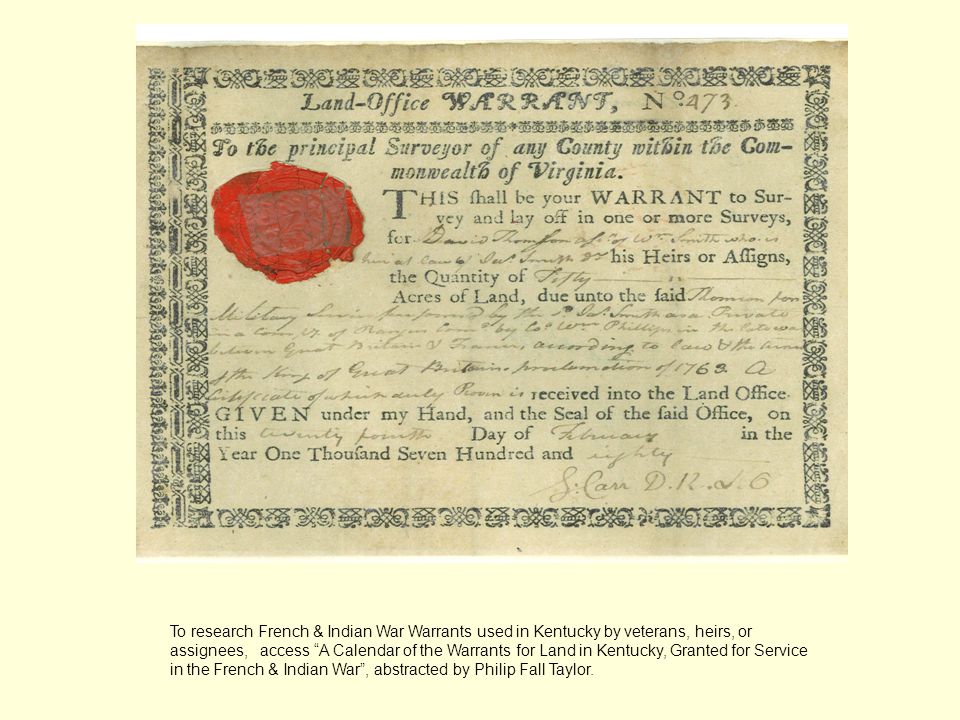 Land-Office WARRANT, Nº. 473.
To the principal Surveyor of any County within the Com-
monwealth of Virginia.
THIS ſhall be your WARRANT to Sur-
vey and lay off in one or more Surveys,
for David Thomson aſsᵉ of Wᵐ Smith who is
heir at Law of Jaˢ Smith his Heirs or Aſſigns,
the Quantity of Fifty
Acres of Land, due unto the ſaid Thomson for
Military Service performed by the sᵈ Jaˢ Smith as a Private
in a Compʸ of Rangers Comᵈ by Coˡ Wᵐ Phillips in the late war
between Great Britain & France, according to Law & the
of the King of Great Britains proclamation of 1763 A
Certificate of which duly Proven is received into the Land Office.
GIVEN under my Hand, and the Seal of the ſaid Office, on
this twenty fourth Day of February in the
Year One Thouſand Seven Hundred and eighty
S: Carr D. R. L. O
To research French & Indian War Warrants used in Kentucky by veterans, heirs, or
assignees, access “A Calendar of the Warrants for Land in Kentucky, Granted for Service
in the French & Indian War”, abstracted by Philip Fall Taylor.